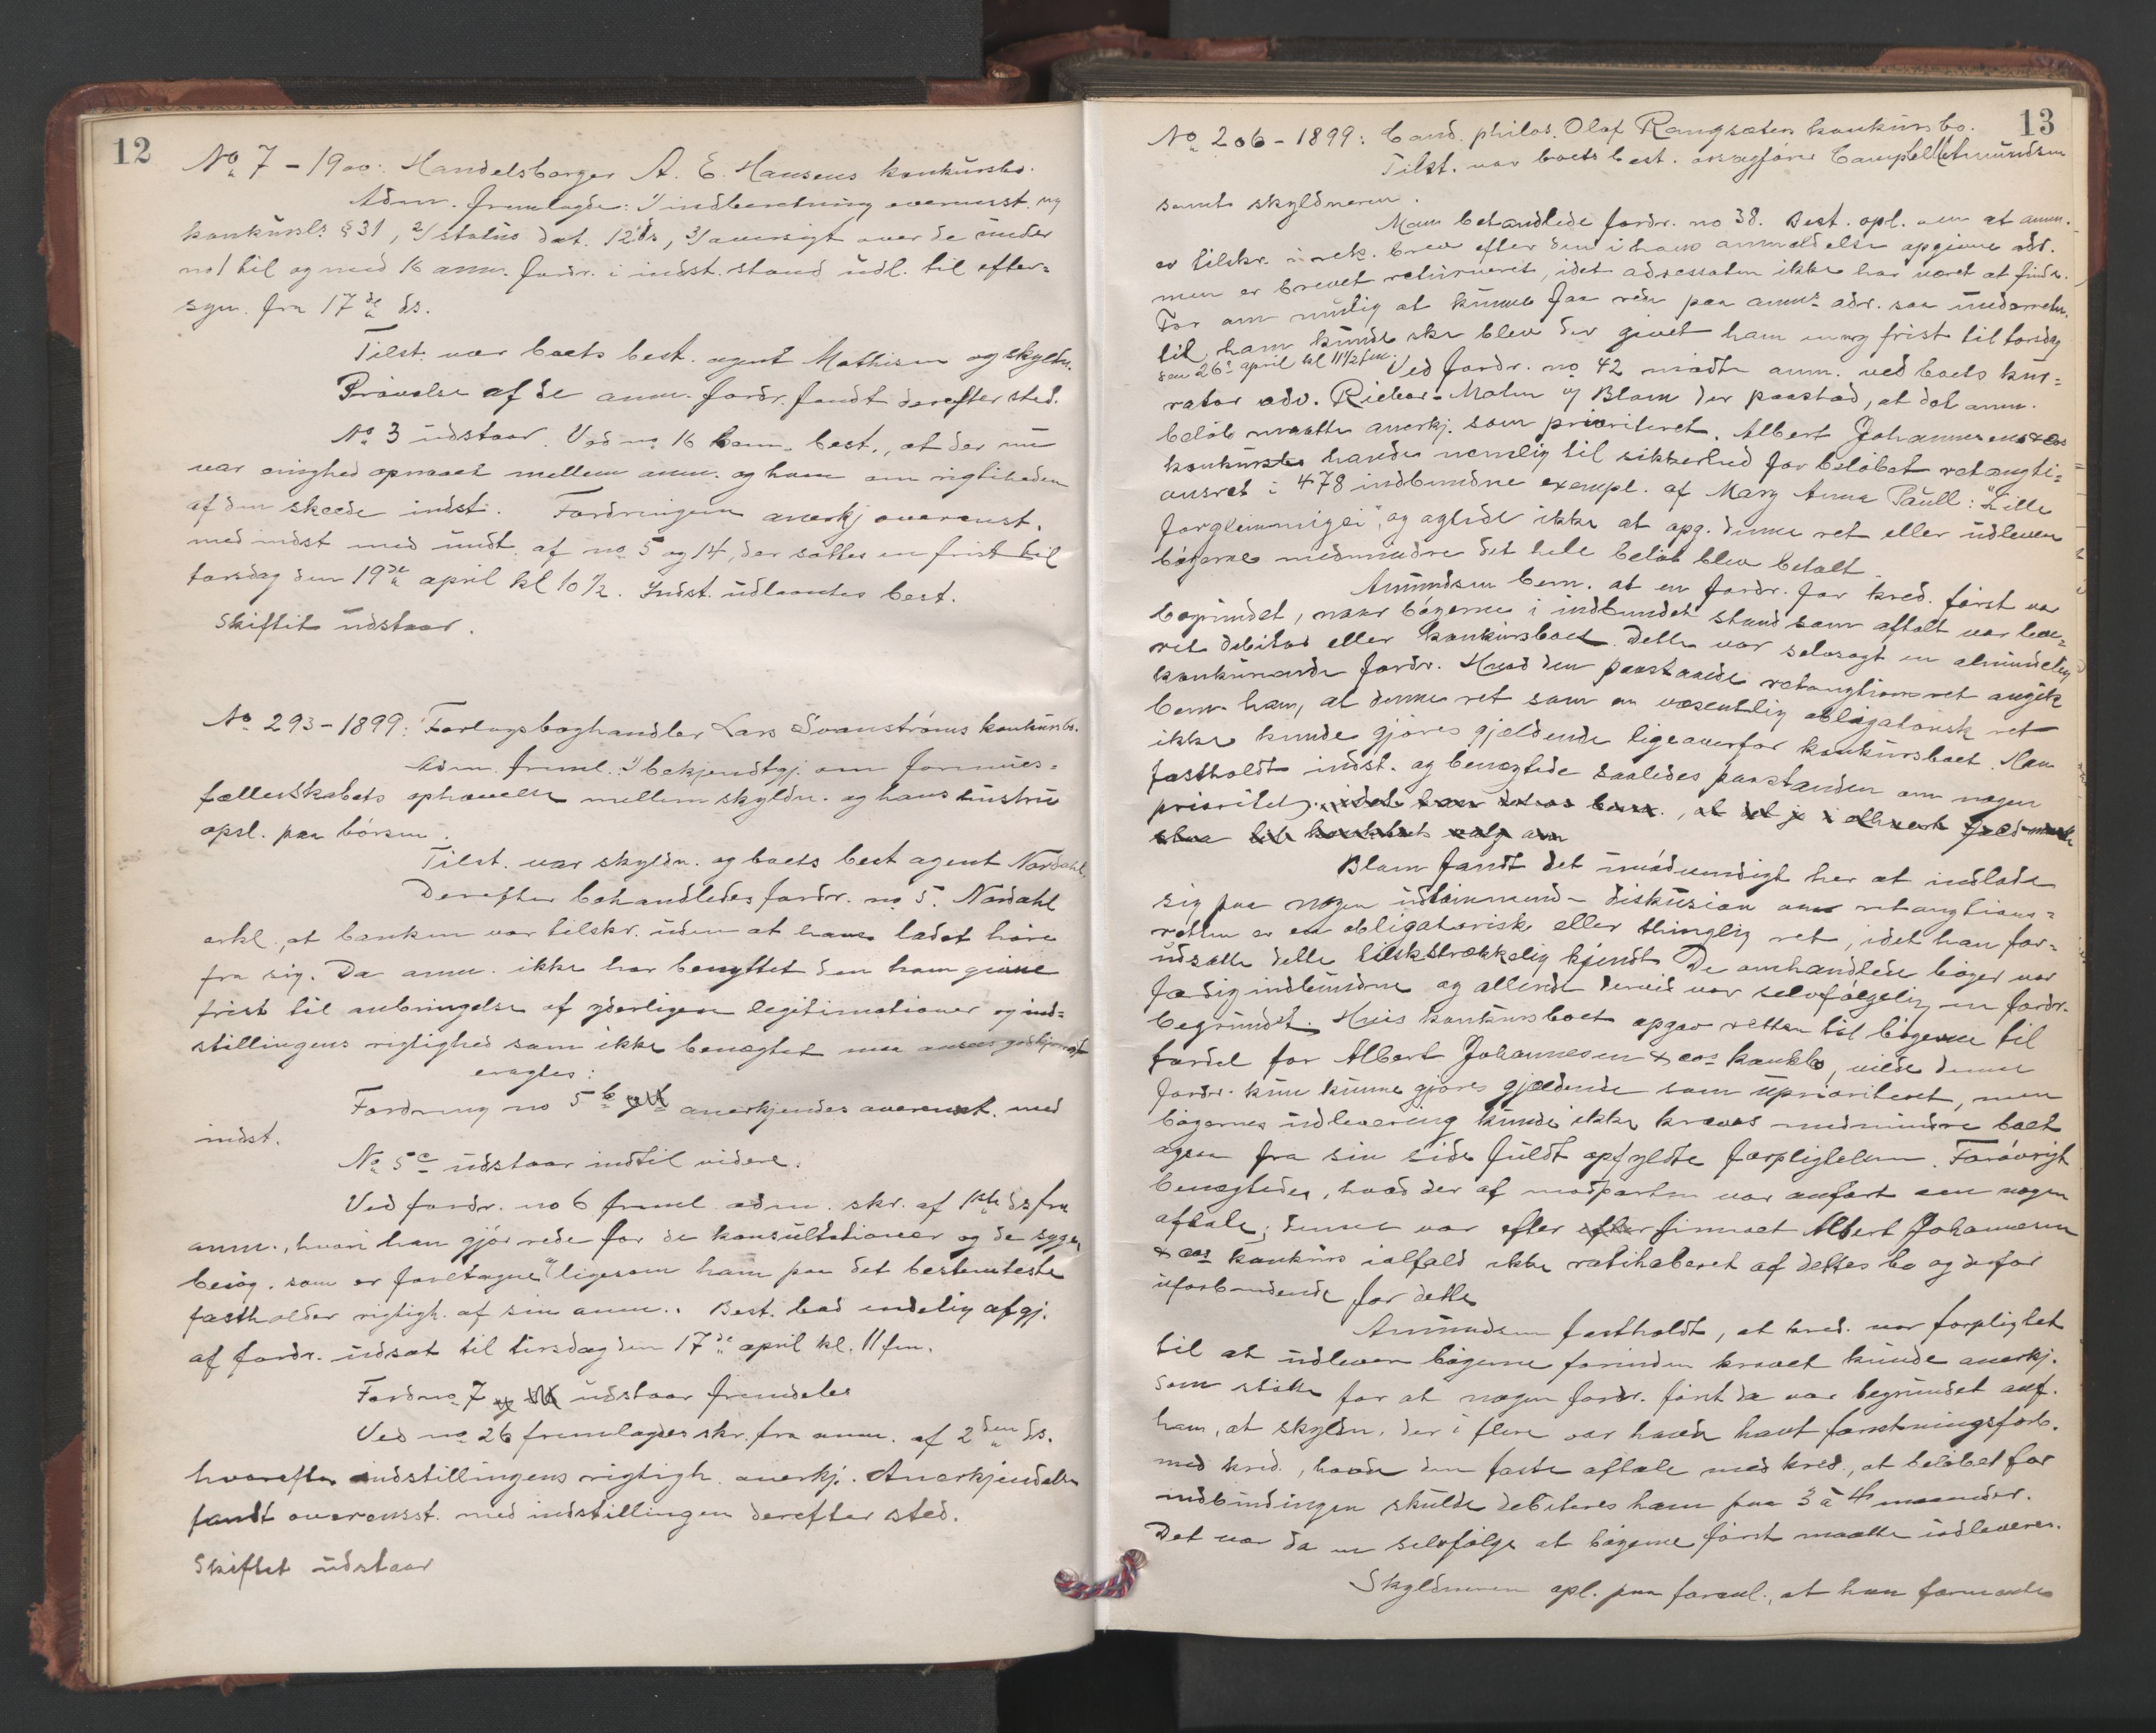 12
No 7 - 1900: Handelsborger A. E. Hansens konkursbo.
Adm. fremlagde: 1) indberetning overensst. m
konkursl. § 31, 2) status dat. 12 ds, 3) oversigt over de under
no 1 til og med 16 anm. fordr. i indst. stand udl. til efter=
syn fra 17de ds.
Tilst. var boets best. agent Mathisen og skyldn.
Prøvelse af de anm. fordr. fandt derefter sted.
No 3 udstaar. Ved no 16 bem. best., at der nu
var enighed opnaaet mellem anm. og ham om rigtigheden
af den skeede indst. Fordringen anerkj overenst.
med indst med undt. af no 5 og 14, der sattes en frist til
torsdag den 19de april kl 10½. Indst. udlaantes best.
Skiftet udstaar.
No 293 - 1899: Forlagsboghandler Lars Svanstrøms konkursbo.
Adm. freml. 1) bekjendtgj. om formues=
fællesskabets ophævelse mellem skyldn. og hans hustru
opsl. paa børsen.
Tilst. var skyldn. og boets best agent Nordahl.
Derefter behandledes fordr. no 5. Nordahl
erkl., at banken var tilskr. uden at have ladet høre
fra sig. Da anm. ikke har benyttet den ham givne
frist til anbringelse af yderligere legitimationer og ind=
stillingens rigtighed som ikke benægtet maa ansees godkjendt
eragtes:
Fordring no 5 b anerkjendes overenst. med
indst.
No 5c udstaar indtil videre.
Ved fordr. no 6 freml adm. skr. af 1ste ds fra
anm., hvori han gjør rede for de konsultationer og de syge
besøg, som er foretagne ligesom ham paa det bestemteste
fastholder rigtigh. af sin anm.. Best. bad endelig afgj.
af fordr. udsat til tirsdag den 17de april kl. 11 fm.
Ford no 7 udstaar fremdeles
Ved no 26 fremlagdes skr. fra anm. af 2den ds.
hvorefter indstillingens rigtigh. anerkj. Anerkjendelse
fandt overensst. med indstillingen derefter sted.
Skiftet udstaar
13
No 206 - 1899: Cand. philos. Olaf Rangsæters konkursbo.
Tilst. var boets best. overagfører Campbell Amundsen
samt skyldneren.
Man behandlede fordr. no 38. Best. opl. om at anm.
er tilskr. i rek. brev efter den i hans anmeldelse opgivne adr.
men er brevet returneret, idet adressaten ikke har været at finde.
For om mulig at kunne faa rede paa anms adr. saa underretn.
til ham kunde ske blev der givet ham en ny frist til torsdag
den 26de april kl 11½ fm. Ved fordr. no 42 mødte anm. ved boets kur=
rator adv. Rieber-Mohn og Blom der paastod, at det anm.
beløb maatte anerkj. som prioriteret. Albert Johannesens & cos
konkursbo havde nemlig til sikkerhed for beløbet retangti=
onsret i 478 indbundne exempl. af Mary Anna Paull: "Lille
forglemmigei", og agtede ikke at opg. denne ret eller udlevere
bøgerne medmindre det hele beløb blev betalt.
Amundsen bem. at en fordr. for kred. først var
begrundet, naar bøgerne i indbundet stand som aftalt var leve=
ret debitor eller konkursboet. Dette var selvsagt en almindelig
konkurrende fordr. Hvad den paastaaede retangtionsret angik
bem. han, at denne ret som en væsentlig obligatorisk ret
ikke kunde gjøres gjældende ligeoverfor konkursboet. Han
fastholdt indst. og benægtede saaledes paastanden om nogen
prioritet.
Blom fandt det unødvendigt her at indlade
sig paa nogen udtømmende diskusion om retangtions=
retten er en obligatorisk eller thinglig ret, idet han for=
udsatte dette tilstrækkelig kjendt. De omhandlede bøger var
færdig indbundne og allerede derved var selvfølgelig en fordr.
begrundet. Hvis konkursboet opgav retten til bøgerne til
fordel for Albert Johannesen & cos konkbo, vilde denne
fordr. kun kunne gjøres gjældende som uprioriteret, men
bøgernes udlevering kunde ikke kræves medmindre boet
ogsaa fra sin side fuldt opfyldte forpligtelsen. Forøvrigt
benægtedes, hvad der af modparten var anført om nogen
aftale; denne var efter firmaet Albert Johannesen
& cos konkurs ialfald ikke ratihaberet af dettes bo og derfor
uforbindende for dette
Amundsen fastholdt, at kred. var forpligtet
til at udlevere bøgerne forinden kravet kunde anerkj.
Som støtte for at nogen fordr. først da var begrundet anf.
han, at skyldn. der i flere aar havde havt forretningsforb.
med kred., havde den faste aftale med kred., at beløbet for
indbindingen skulde debiteres ham paa 3 à 4 maaneder.
Det var da en selvfølge at bøgerne først maatte udleveres.
Skyldneren opl. paa foranl., at han formente